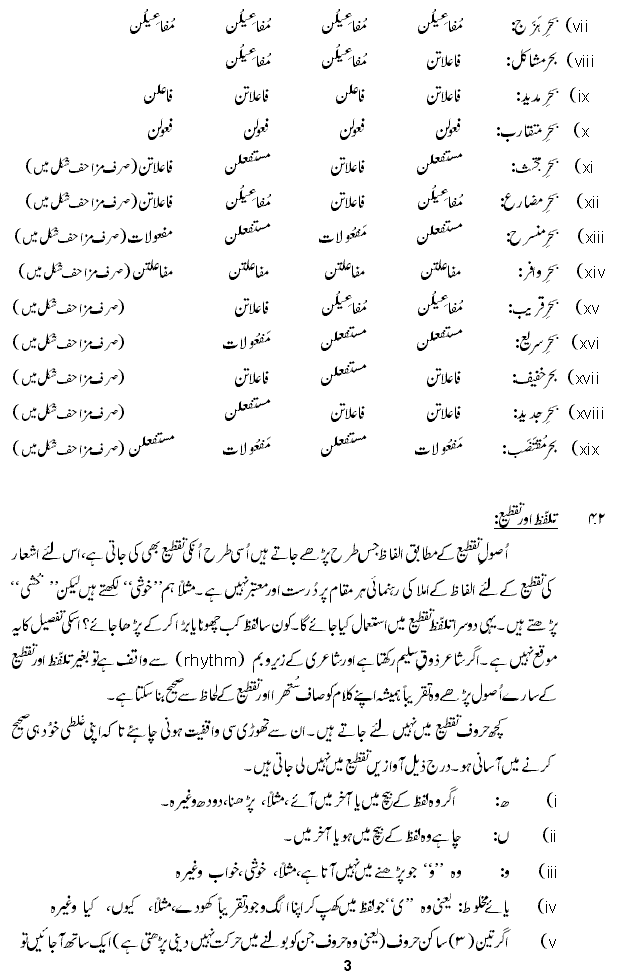 vii) بحرِ ہَزَج: مُفاعیلُن مُفاعیلُن مُفاعیلُن مُفاعیلُن
viii) بحرِ مشاکل: فاعلاتن مُفاعیلُن مُفاعیلُن
ix) بحرِ مدید: فاعلاتن فاعلن فاعلاتن فاعلن
x) بحرِ متقارب: فعولن فعولن فعولن فعولن
xi) بحرِ مجتث: مستفعلن فاعلاتن مستفعلن فاعلاتن (صرف مزاحف شکل میں)
xii) بحرِ مضارع: مُفاعیلُن فاعلاتن مُفاعیلُن فاعلاتن (صرف مزاحف شکل میں)
xiii) بحرِ منسرح: مستفعلن مَفعُولات مستفعلن مفعولات (صرف مزاحف شکل میں)
xiv) بحرِ وافر: مفاعلتن مفاعلتن مفاعلتن مفاعلتن (صرف مزاحف شکل میں)
xv) بحرِ قریب: مُفاعیلُن مُفاعیلُن فاعلاتن (صرف مزاحف شکل میں)
xvi) بحرِ سریع: مستفعلن مستفعلن مَفعُولات (صرف مزاحف شکل میں)
xvii) بحرِ خفیف: فاعلاتن مستفعلن فاعلاتن (صرف مزاحف شکل میں)
xviii) بحرِ جدید: فاعلاتن فاعلاتن مستفعلن (صرف مزاحف شکل میں)
xix) بحرِ مُقتضَب: مَفعُولات مستفعلن مَفعُولات مستفعلن (صرف مزاحف شکل میں)
۴.۲ تلفّظ اور تقطیع:
اُصولِ تقطیع کے مطابق الفاظ جس طرح پڑھے جاتے ہیں اُسی طرح اُنکی تقطیع بھی کی جاتی ہے، اس لئے اشعار
کی تقطیع کے لئے الفاظ کے املا کی رہنمائی ہر مقام پر دُرست اور معتبر نہیں ہے۔ مثلاً ہم ”خوشی“ لکھتے ہیں لیکن ”خُشی“
پڑھتے ہیں۔ یہی دوسرا تلفّظ تقطیع میں استعمال کیا جائے گا۔ کون سا لفظ کب چھوٹا یا بڑا کر کے پڑھا جائے؟ اسکی تفصیل کا یہ
موقع نہیں ہے۔ اگر شاعر ذوقِ سلیم رکھتا ہے اور شاعری کے زیر و بم (rhythm) سے واقف ہے تو بغیر تلفّظ اور تقطیع
کے سارے اُصول پڑھے وہ تقریباً ہمیشہ اپنے کلام کو صاف سُتھرا اور تقطیع کے لحاظ سے صحیح بنا سکتا ہے۔
کچھ حروف تقطیع میں نہیں لئے جاتے ہیں۔ ان سے تھوڑی سی واقفیت ہونی چاہئے تاکہ اپنی غلطی خوُد ہی صحیح
کرنے میں آسانی ہو۔ درج ذیل آوازیں تقطیع میں نہیں لی جاتی ہیں۔
i) ھ: اگر وہ لفظ کے بیچ میں یا آخر میں آئے، مثلاً، پڑھنا، دودھ وغیرہ۔
ii) ں: چاہے وہ لفظ کے بیچ میں ہو یا آخر میں۔
iii) و: وہ ”و“ جو پڑھنے میں نہیں آتا ہے، مثلاً، خوشی، خواب وغیرہ
iv) یائے مخلوط: یعنی وہ ”ی“ جو لفظ میں کھپ کر اپنا الگ وجود تقریباً کھو دے، مثلاً، کیوں، کیا وغیرہ
v) اگر تین (۳) ساکن حروف (یعنی وہ حروف جن کو بولنے میں حرکت نہیں دینی پڑھتی ہے) ایک ساتھ آ جائیں تو
3